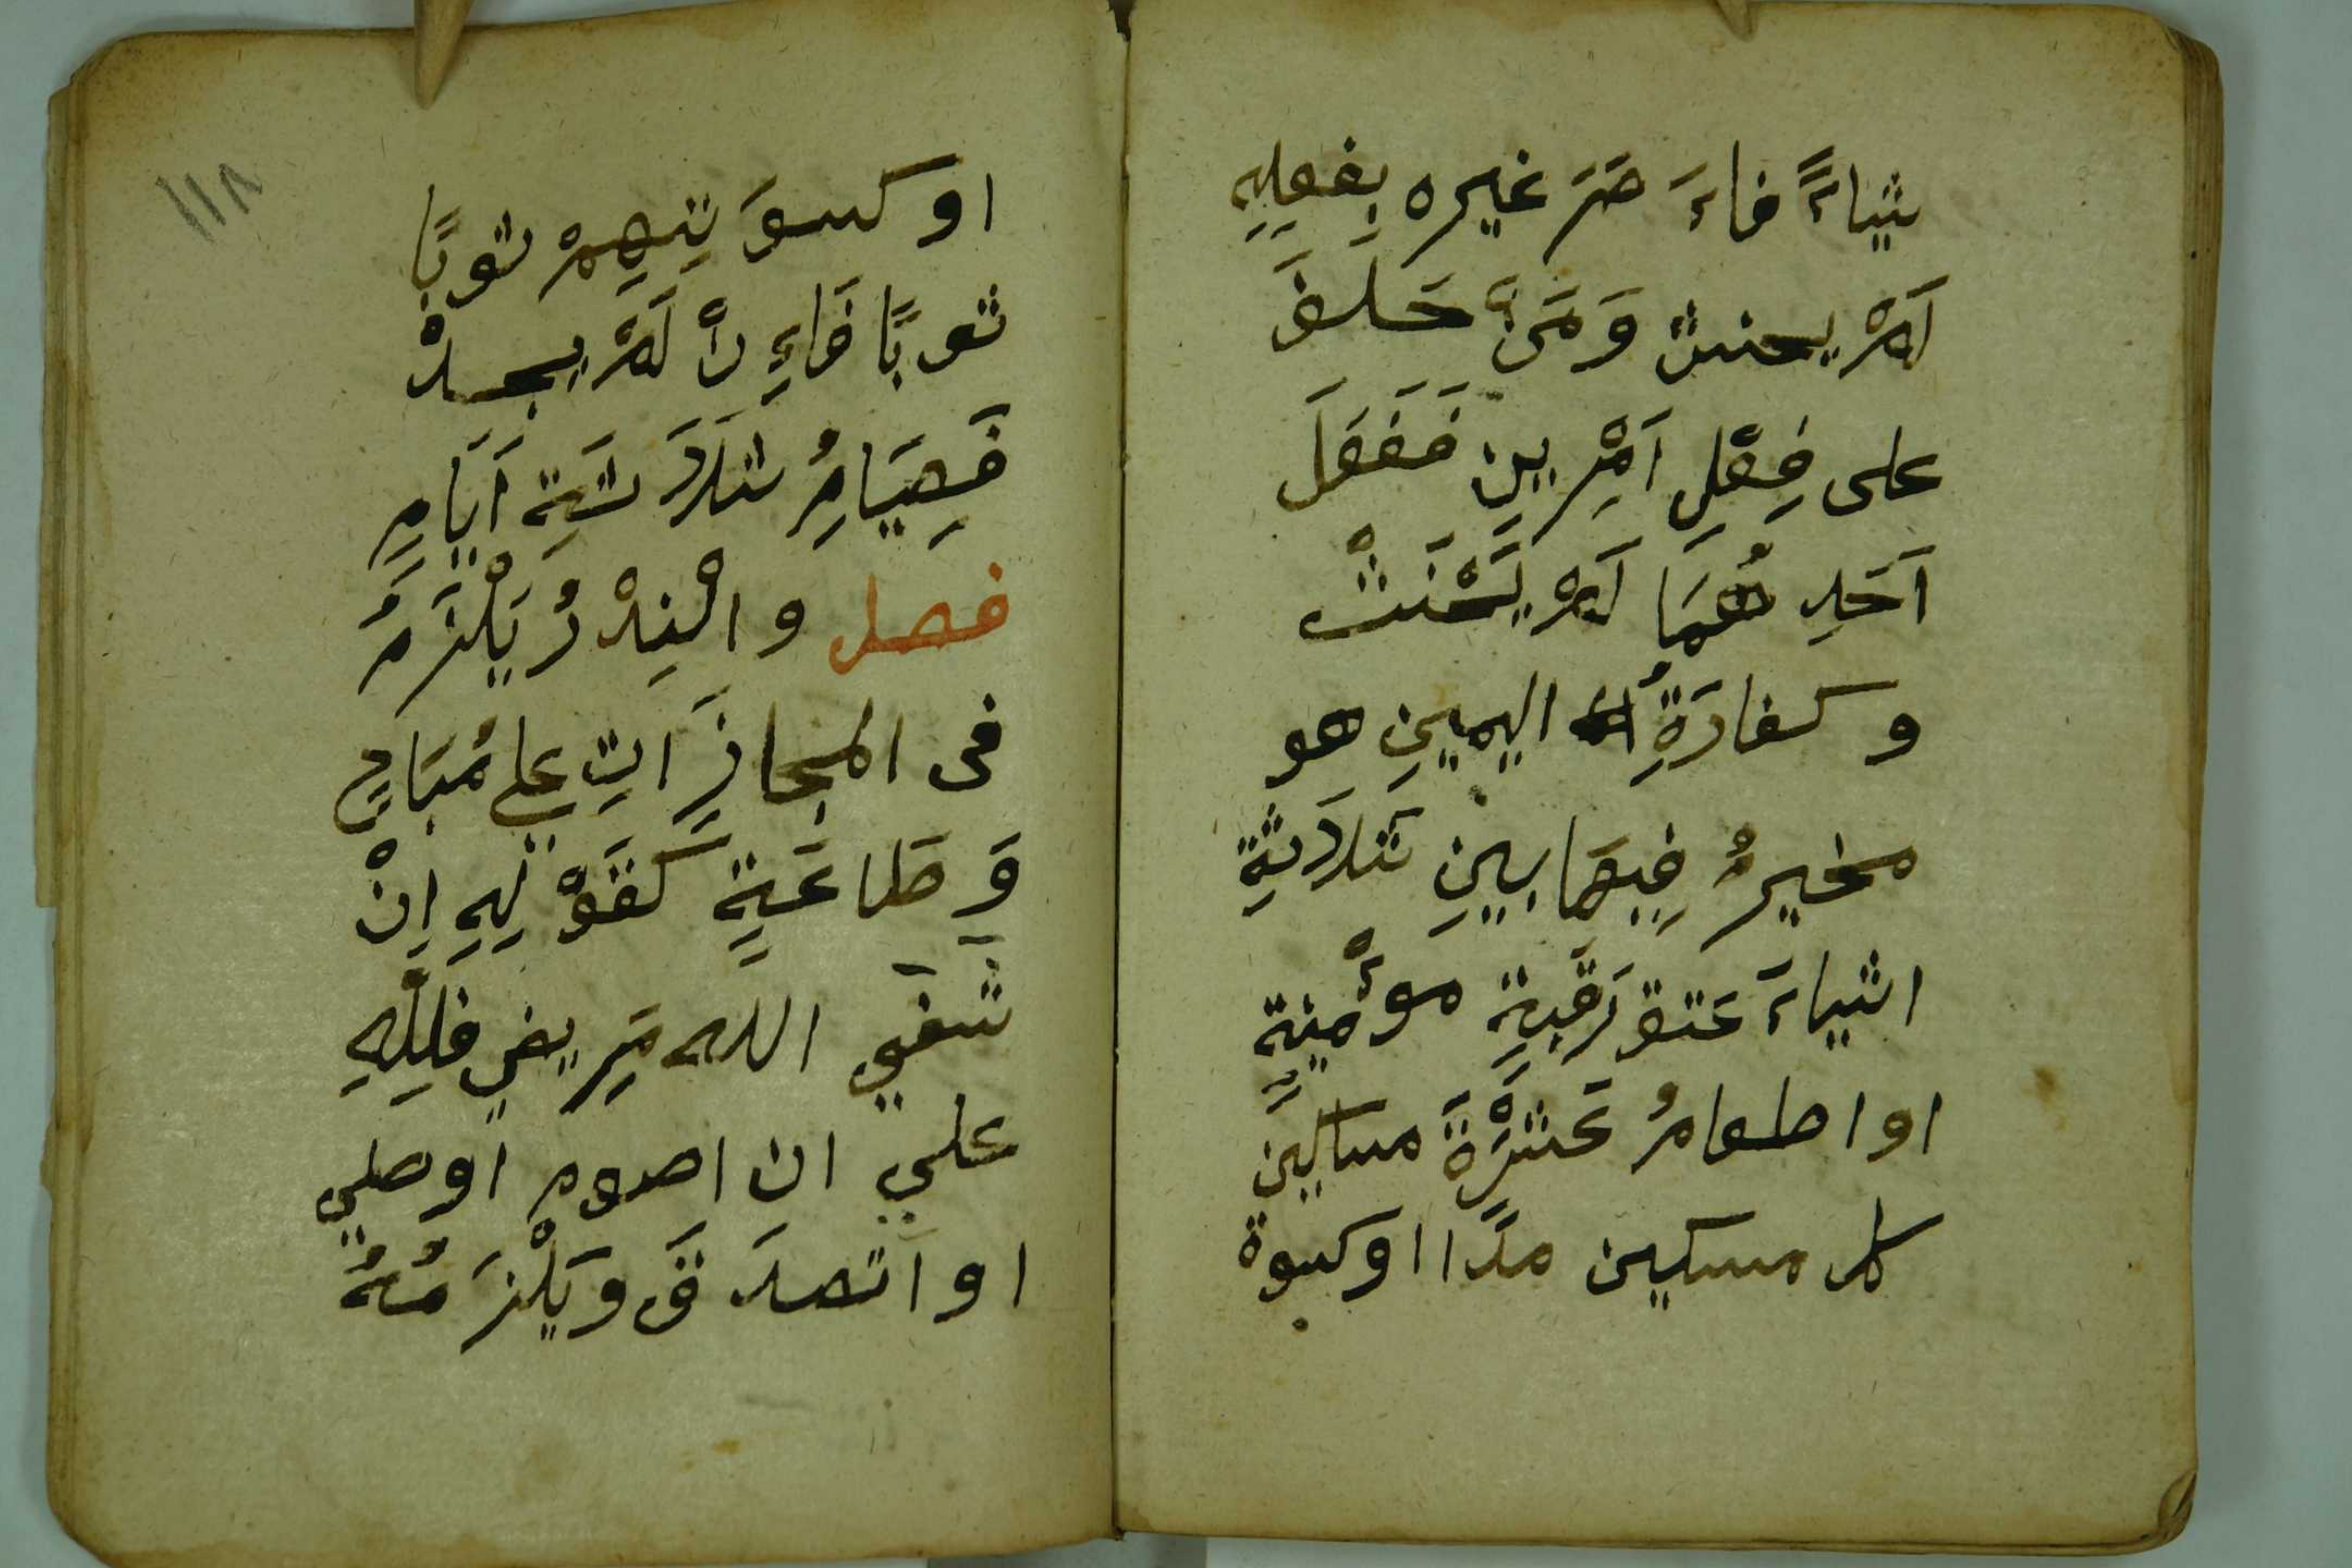 شياءً فاءَ مَرَ غيره بِفعلِهِ
لَمْ يحنث وَمَنْ حَلَفَ
على فِعْلِ اَمْرِ ين فَفَعَلَ
اَحَدِ هُمَا لَمْ يَحْنَثْ
وكفارَةُ اليمينِ هو
مخيرُ فِيهَا بينِ ثَلَاثَةِ
اشياءَ عَتق رَقَبةٍ موءْمِنةٍ
او اطعامُ عَشَرْةَ مساكينَ
كل مسكين مدًا اوكبوة
١١٨
او كسوَ تِهِمْ ثوبًا
ثوبًا فَاءِ نْ لَمْ يجدْ
فَصِيَامُ ثَلَاثَةِ اَيَامٍ
فصل والنِذْرُ يَلْزَمُ
فى المجازَاتِ علي مُبَاحٍ
وَطَاعَةٍ كَقَوْ لِهِ اِنْ
شَفَي الله مَرِيضي فلِلّهِ
علي ان اصوم اوصلي
او اتصدَ قَ ويَلْزَمُهُ